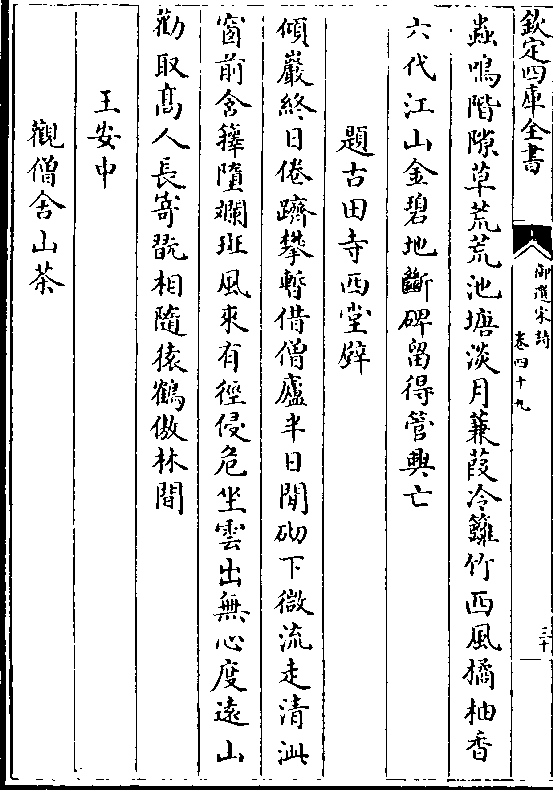 欽定四庫全書
御選宋詩
卷四十九
三十
蟲鳴階隙草荒荒池塘淡月蒹葭冷籬竹西風橘柚香
六代江山金碧地斷碑留得管興亡
題古田寺西堂壁
傾巖終日倦躋攀暫借僧廬半日閒砌下微流走清泚
窗前舍籜隕斕斑風來有徑侵危坐雲出無心度遠山
勸取髙人長寄翫相隨猿鶴傲林間
王安中
觀僧舍山茶